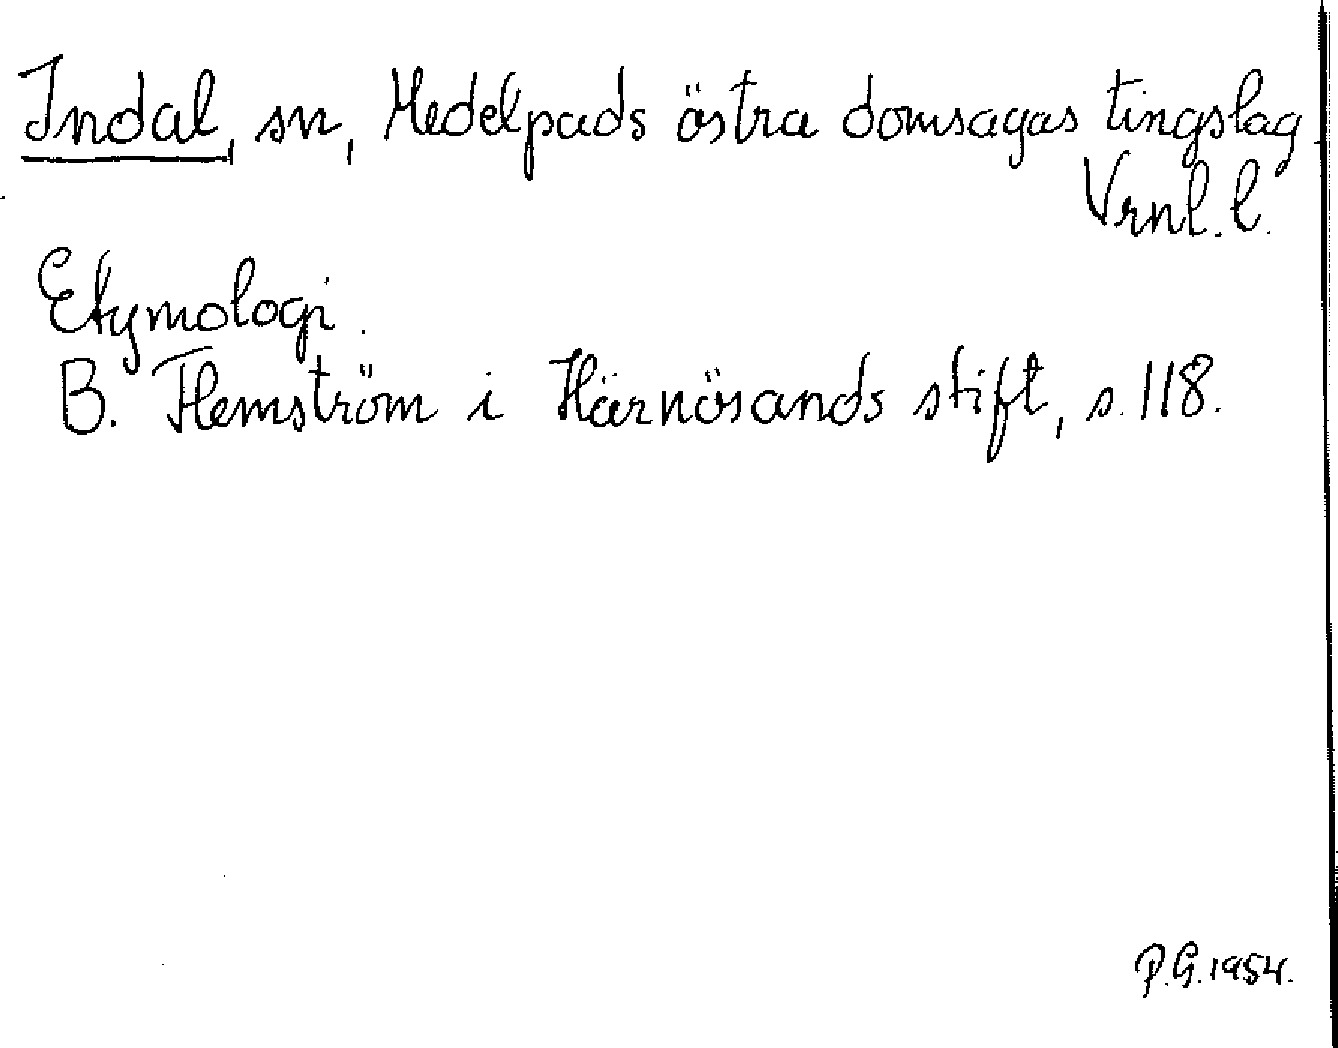 Indal, sn, Medelpads östra domsagas tingslag
Vrnl. l.
Etymologi.
B. Flemström i Härnösands stift, s. 118.
P.G. 1954.